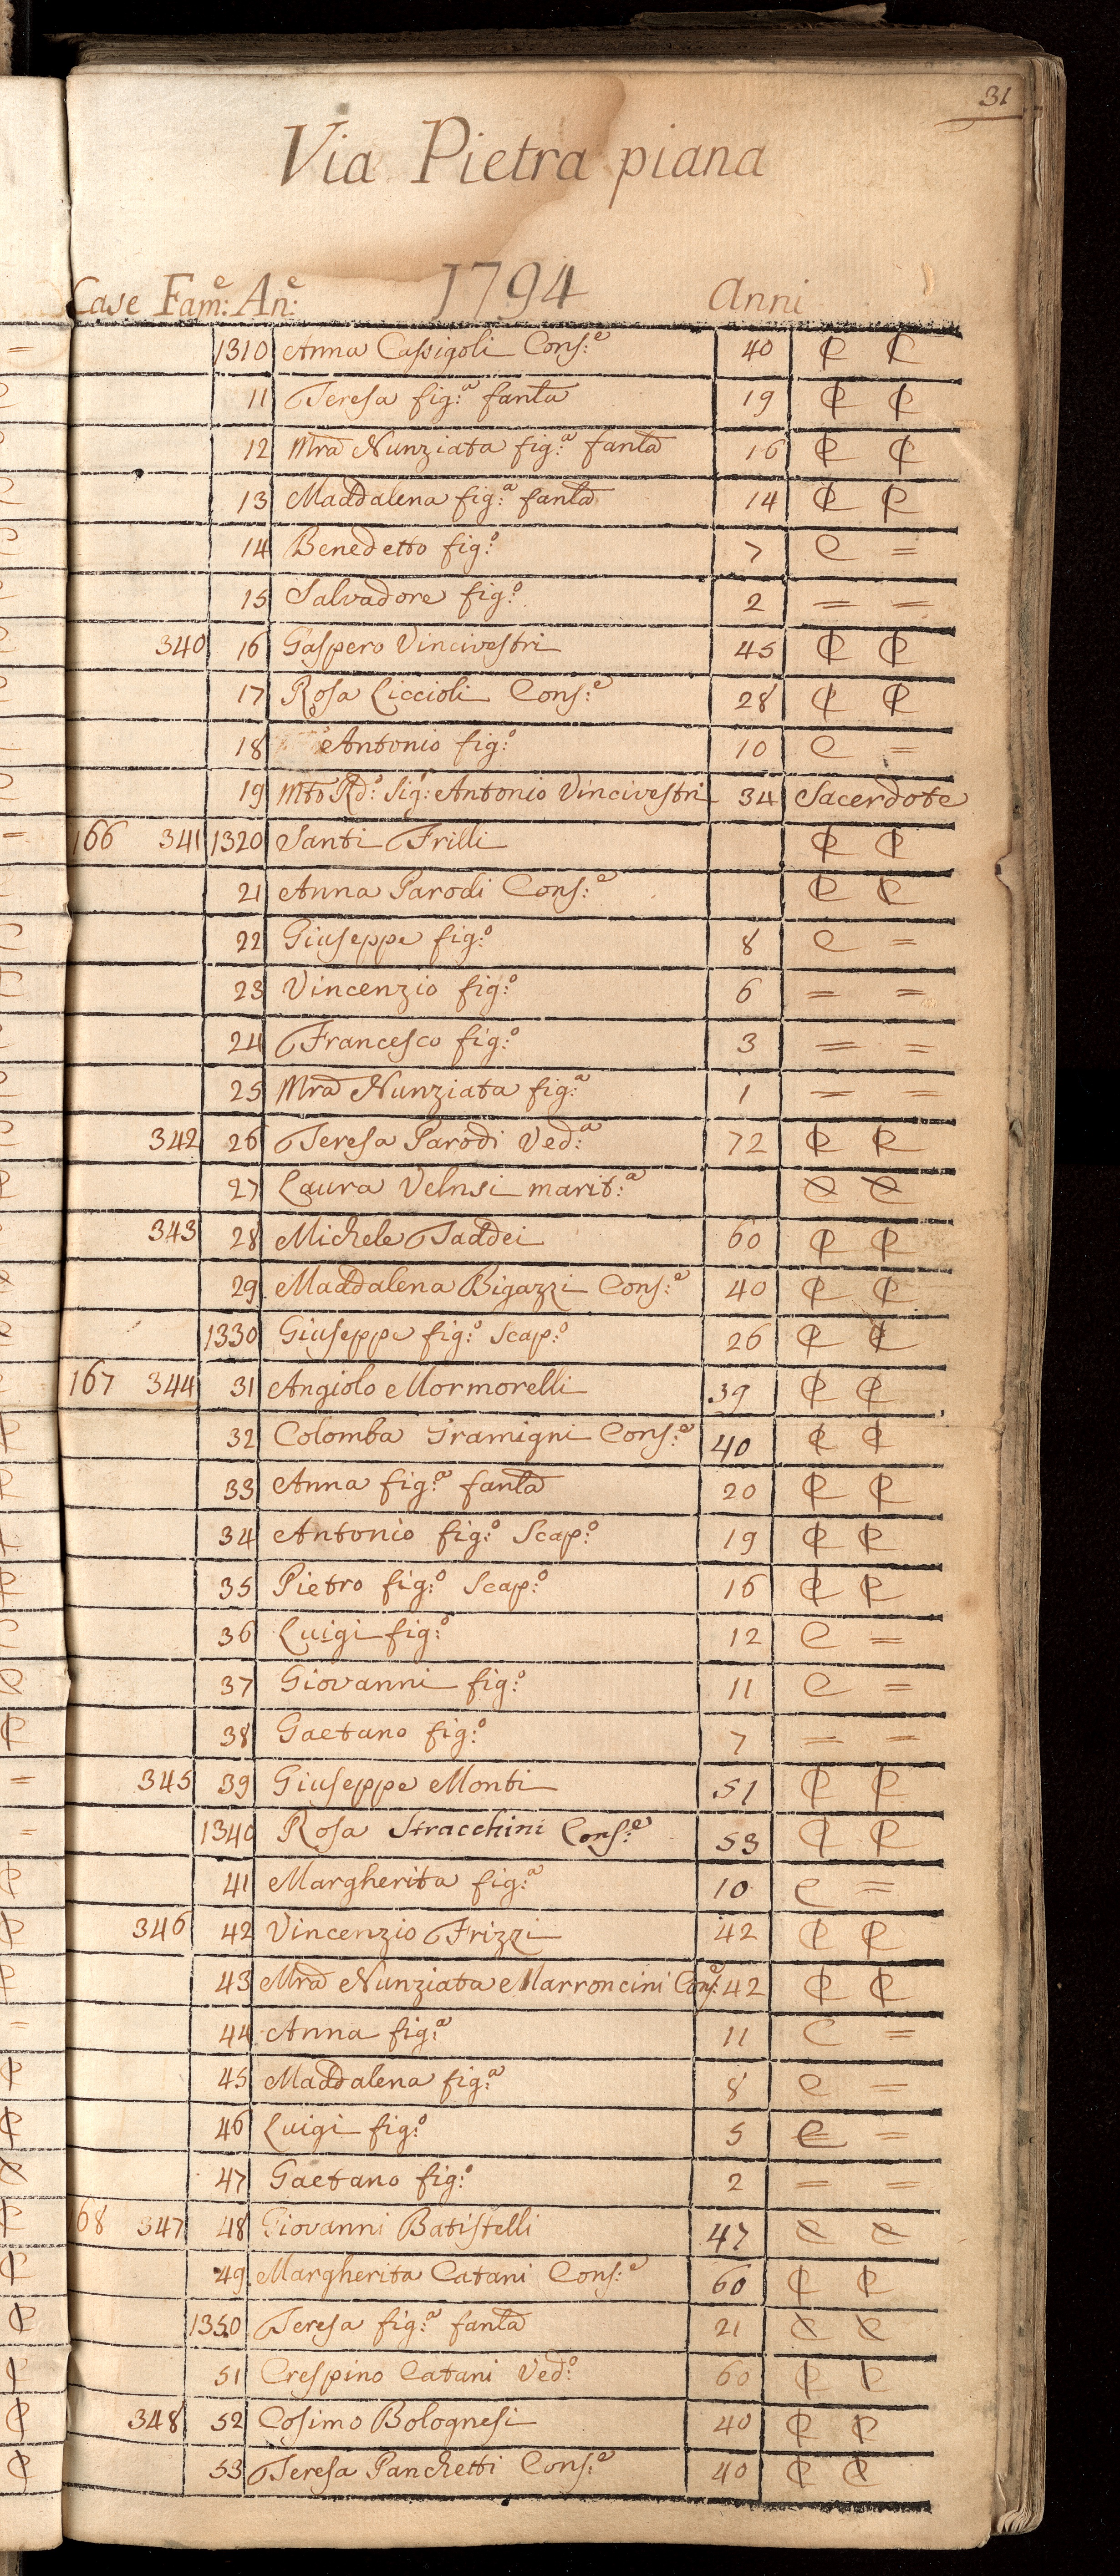 31
Via Pietra piana
Case Fam:e An:e 1794 Anni
1310 Anna Cassigoli Cons:e 40 C C
11 Teresa fig:a fanla 19 C C
12 Mra Nunziata fig:a fanla 16 C C
13 Maddalena fig:a fanla 14 C C
14 Benedetto fig:o 7 C =
15 Salvadore fig:o 2 = =
340 16 Gaspero Vincivestri 45 C C
17 Rosa Liccioli Cons:e 28 C C
18 Antonio fig:o 10 C =
19 Mto Rdo: Sigr: Antonio Vincivestri 34 Sacerdote
166 341 1320 Santi Frilli C C
21 Anna Parodi Cons:e C C
22 Giuseppe fig:o 8 C =
23 Vincenzio fig:o 6 = =
24 Francesco fig:o 3 = =
25 Mra Nunziata fig:a 1 = =
342 26 Teresa Parodi Ved:a 72 C C
27 Laura marit:a C C
343 28 Michele Taddei 60 C C
29 Maddalena Bigazzi Cons:e 40 C C
1330 Giuseppe fig:o Scap:o 26 C C
167 344 31 Angiolo Mormorelli 39 C C
32 Colomba Gramigni Cons:e 40 C C
33 Anna fig:a fanla 20 C C
34 Antonio fig:o Scap:o 19 C C
35 Pietro fig:o Scap:o 16 C C
36 Luigi fig:o 12 C =
37 Giovanni fig:o 11 C =
38 Gaetano fig:o 7 = =
345 39 Giuseppe Monti 51 C C
1340 Rosa Stracchini Cons:e 53 C C
41 Margherita fig:a 10 C =
346 42 Vincenzio Frizzi 42 C C
43 Mra Nunziata Marroncini Cons:e 42 C C
44 Anna fig:a 11 C =
45 Maddalena fig:a 8 C =
46 Luigi fig:o 5 C =
47 Gaetano fig:o 2 = =
68 347 48 Giovanni Batistelli 47 C C
49 Margherita Catani Cons:e 60 C C
1350 Teresa fig:a fanla 21 C C
51 Crespino Catani Ved:o 60 C C
348 52 Cosimo Bolognesi 40 C C
53 Teresa Panchetti Cons:e 40 C C